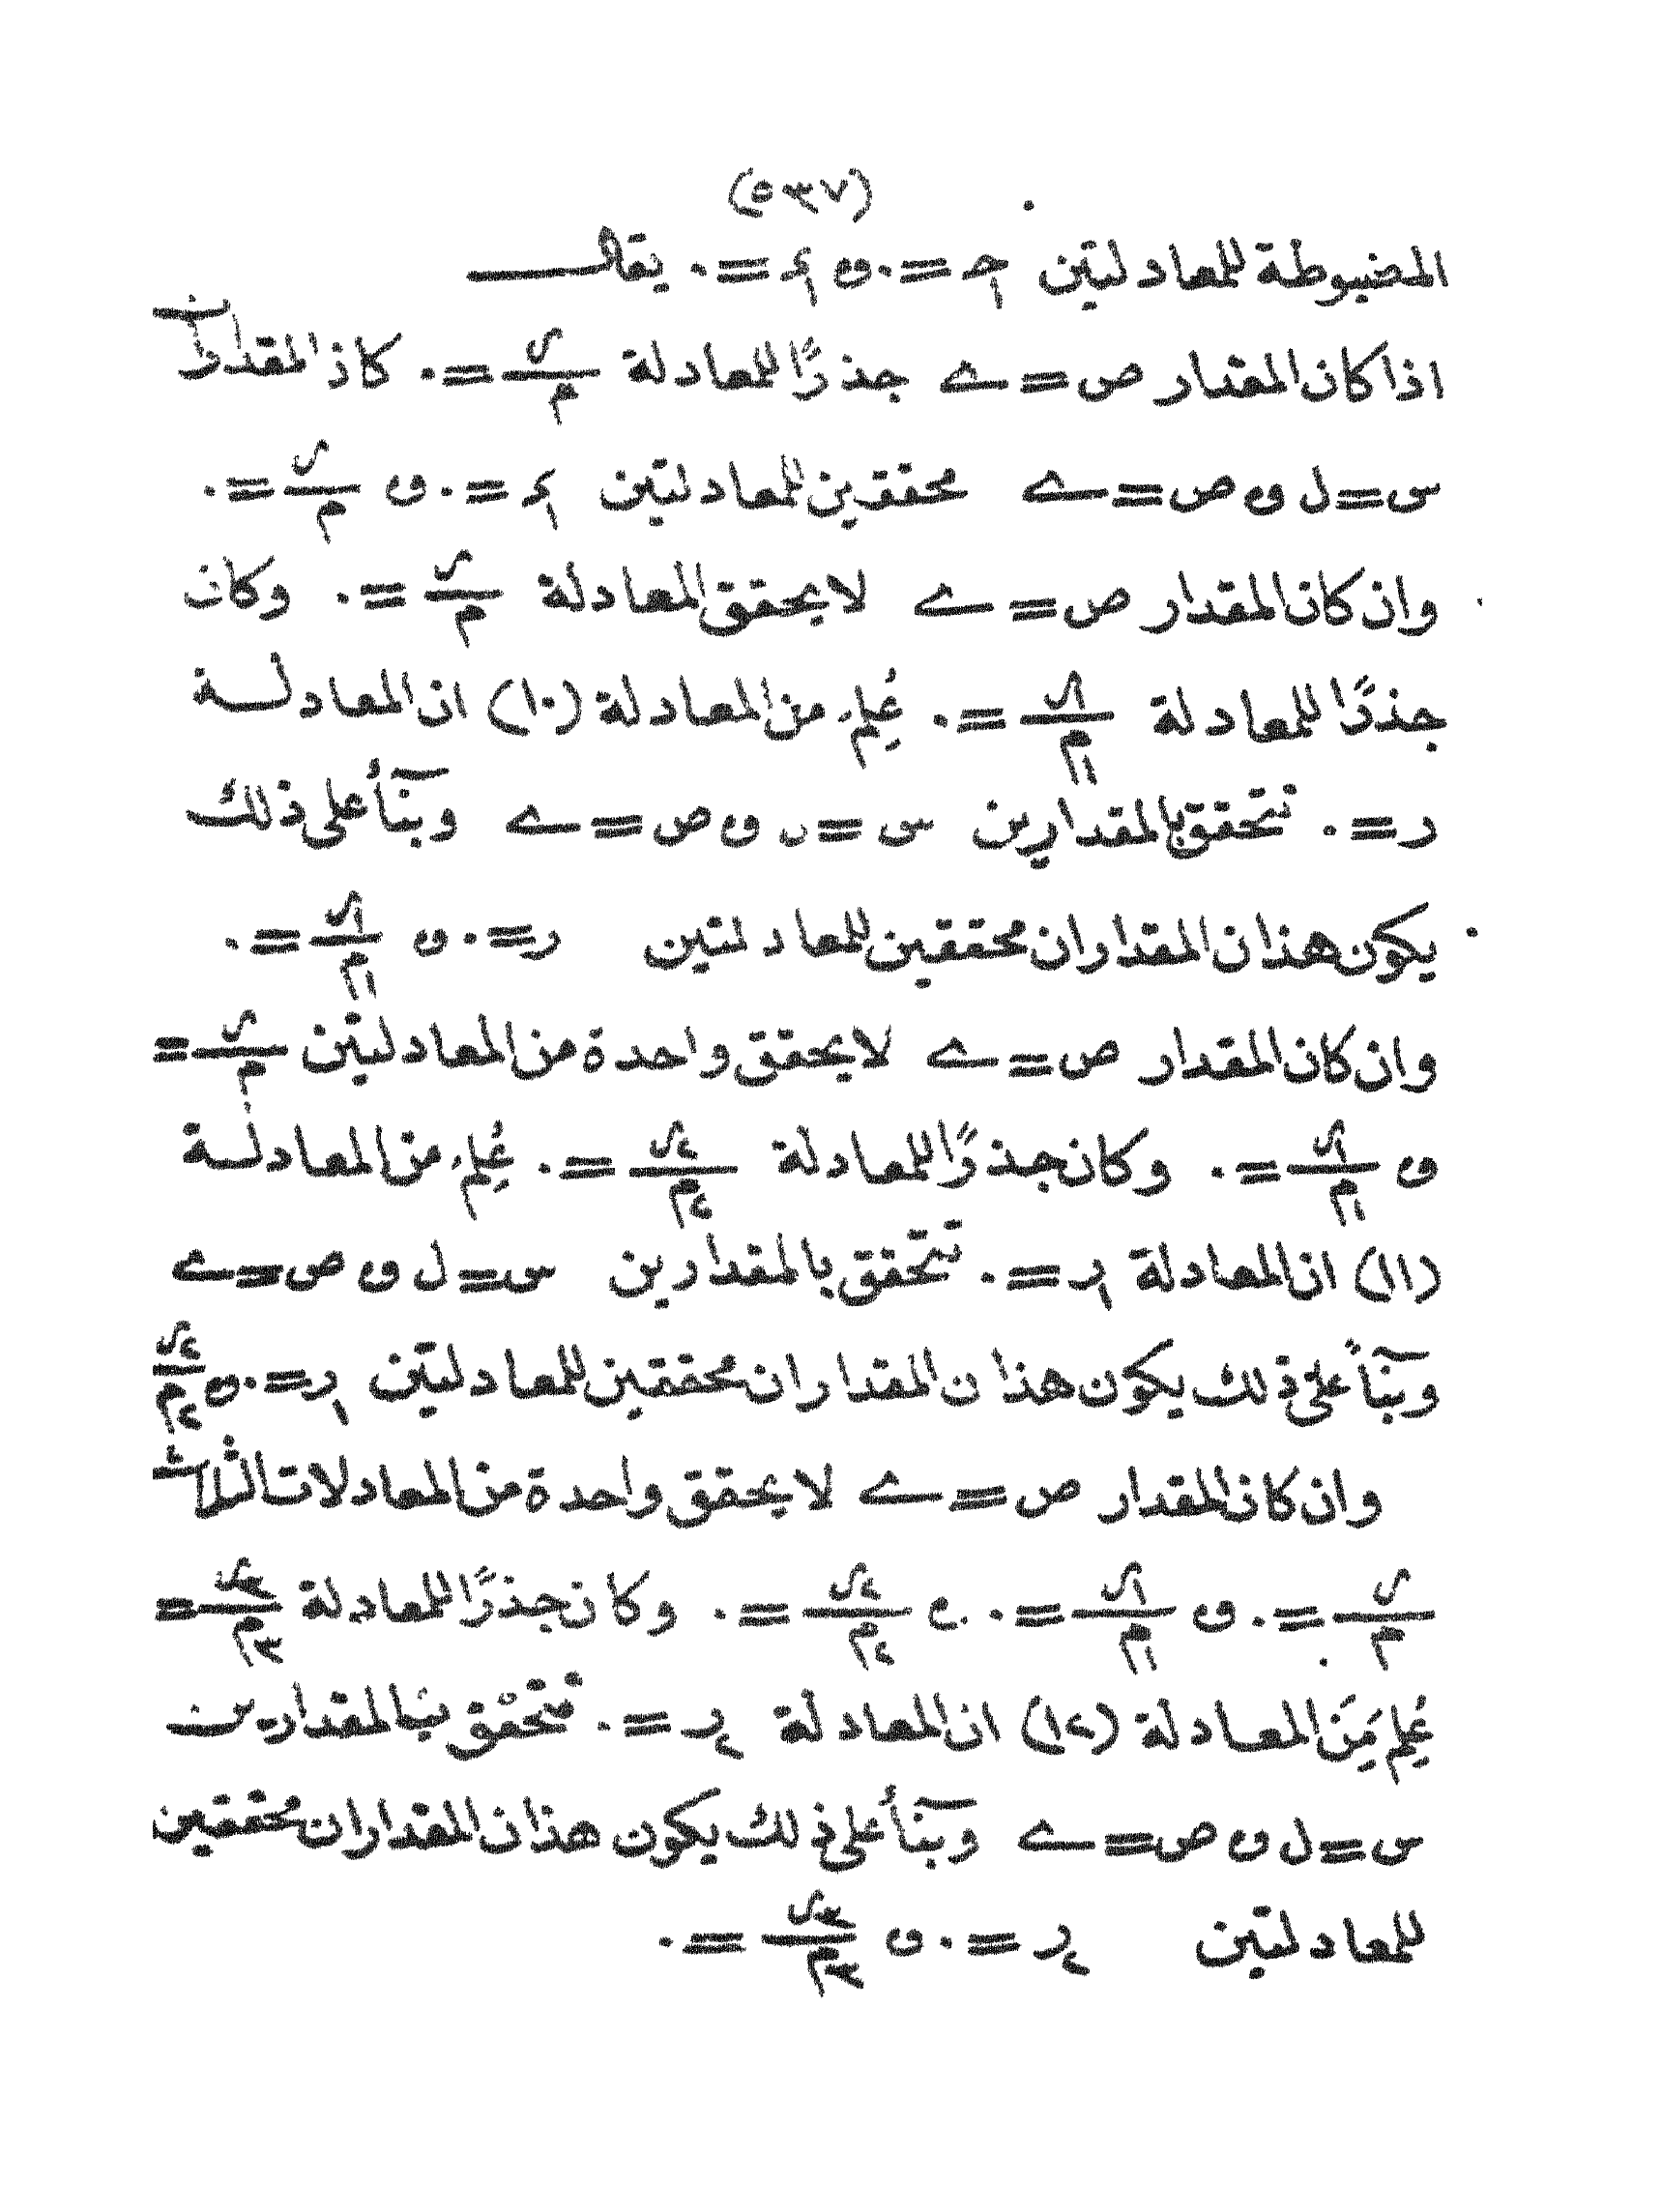 (٥٣٧)
المضبوطة للمعادلتين حـ١ = ٠ و ء١ = ٠ يقال
اذا كان المقدار ص = ے جذرًا للمعادلة س/م = ٠ كان المقداران
س = ل و ص = ے محققين للمعادلتين ء١ = ٠ و س/م = ٠
وان كان المقدار ص = ے لا يحقق المعادلة س/م = ٠ وكان
جذرًا للمعادلة س١/م١ = ٠ عُلِمَ من المعادلة (١٠) ان المعادلة
ر = ٠ تتحقق بالمقدارين س = ل و ص = ے وبنآءً على ذلك
يكون هذان المقداران محققين للمعادلتين ر = ٠ و س١/م١ = ٠
وان كان المقدار ص = ے لا يحقق واحدة من المعادلتين س/م =
و س١/م١ = ٠ وكان جذرًا للمعادلة س٢/م٢ = ٠ عُلِمَ من المعادلة
(١١) ان المعادلة ر١ = ٠ تتحقق بالمقدارين س = ل و ص = ے
وبنآءً على ذلك يكون هذان المقداران محققين للمعادلتين ر١ = ٠ و س٢/م٢
وان كان المقدار ص = ے لا يحقق واحدة من المعادلات الثلاث
س/م = ٠ و س١/م١ = ٠ و س٢/م٢ = ٠ وكان جذرًا للمعادلة س٣/م٣ =
عُلِمَ مِنَ المعادلة (١٢) ان المعادلة ر٢ = ٠ تتحقق بالمقدارين
س = ل و ص = ے وبنآءً على ذلك يكون هذان المقداران محققين
للمعادلتين ر٢ = ٠ و س٣/م٣ = ٠